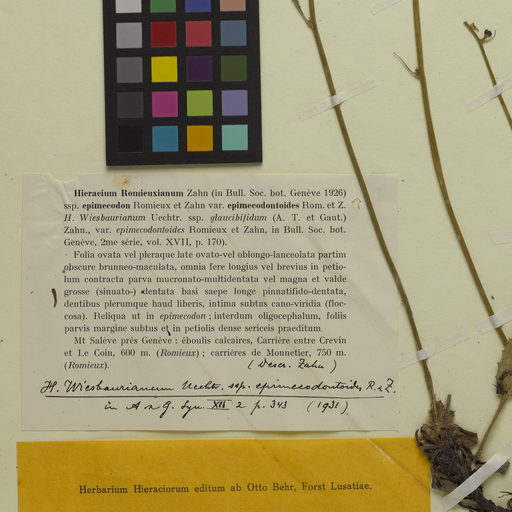 Hieracium Romieuxianum Zahn (in Bull. Soc. bot. Genève 1926)
ssp. epimecodon Romieux et Zahn var. epimecodontoides Rom. et Z.
H. Wiesbaurianum Uechtr. ssp. glaucibifidum (A. T. et Gaut.)
Zahn., var. epimecodontoides Romieux et Zahn, in Bull. Soc. bot.
Genève, 2me série, vol. XVII, p. 170).
Folia ovata vel pleraque late ovato-vel oblongo-lanceolata partim
obscure brunneo-maculata, omnia fere longius vel brevius in petio-
lum contracta parva mucronato-multidentata vel magna et valde
grosse (sinuato-) dentata basi saepe longe pinnatifido-dentata,
dentibus plerumque haud liberis, intima subtus cano-viridia (floc-
cosa). Reliqua ut in epimecodon; interdum oligocephalum, foliis
parvis margine subtus et in petiolis dense sericeis praeditum
Mt Salève près Genève: éboulis calcaires, Carrière entre Crevin
et Le Coin, 600 m. (Romieux); carrières de Monnetier, 750 m.
(Romieux). (Descr. Zahn)
H. Wiesbaurianum Uechtr. ssp. epimecodontoides R. & Z.
in A & G. Syn. XII 2 p. 343 (1931)
Herbarium Hieraciorum editum ab Otto Behr, Forst Lusatiae.